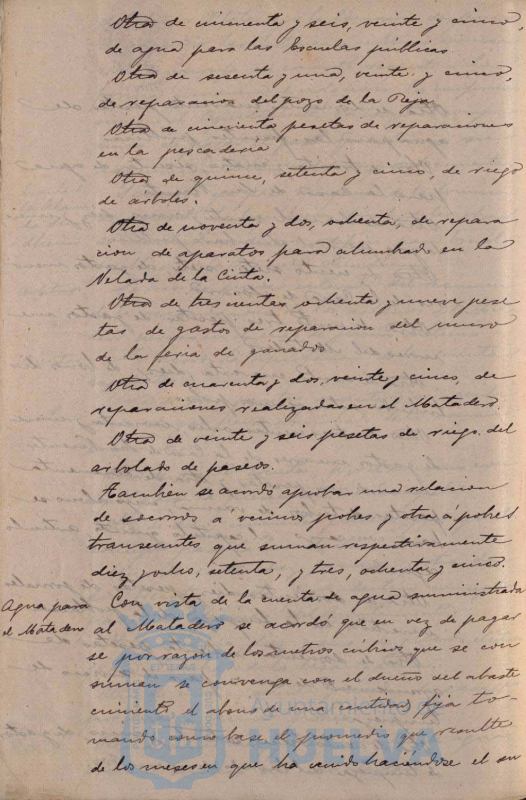 Otra de cincuenta y seis, veinte y cinco,
de agua para las Escuelas públicas
Otra de sesenta y una, veinte y cinco,
de reparacion del pozo de la Reja.
Otra de cincuenta pesetas de reparaciones
en la pescaderia
Otra de quince, setenta y cinco, de riego
de árboles.
Otra de noventa y dos, ochenta, de repara
cion de aparatos para alumbrado en la
Velada de la Cinta.
Otra de trescientas ochenta y nueve pese
tas de gastos de reparacion del muro
de la feria de ganados
Otra de cuarenta y dos, veinte y cinco, de
reparaciones realizadas en el Matadero.
Otra de veinte y seis pesetas de riego del
arbolado de paseos.
Tambien se acordó aprobar una relacion
de socorros á vecinos pobres y otra á pobres
transeuntes que suman respectivamente
diez y ocho, setenta, y tres, ochenta y cinco.
Agua para
el Matadero
Con vista de la cuenta de agua suministrada
al Matadero se acordó que en vez de pagar
se por razón de los metros cubicos que se con
suman se convenga con el dueño del abaste
cimiento el abono de una cantidad fija to
mando como base el promedio que resulte
de los meses en que ha venido haciéndose el su
HUELVA